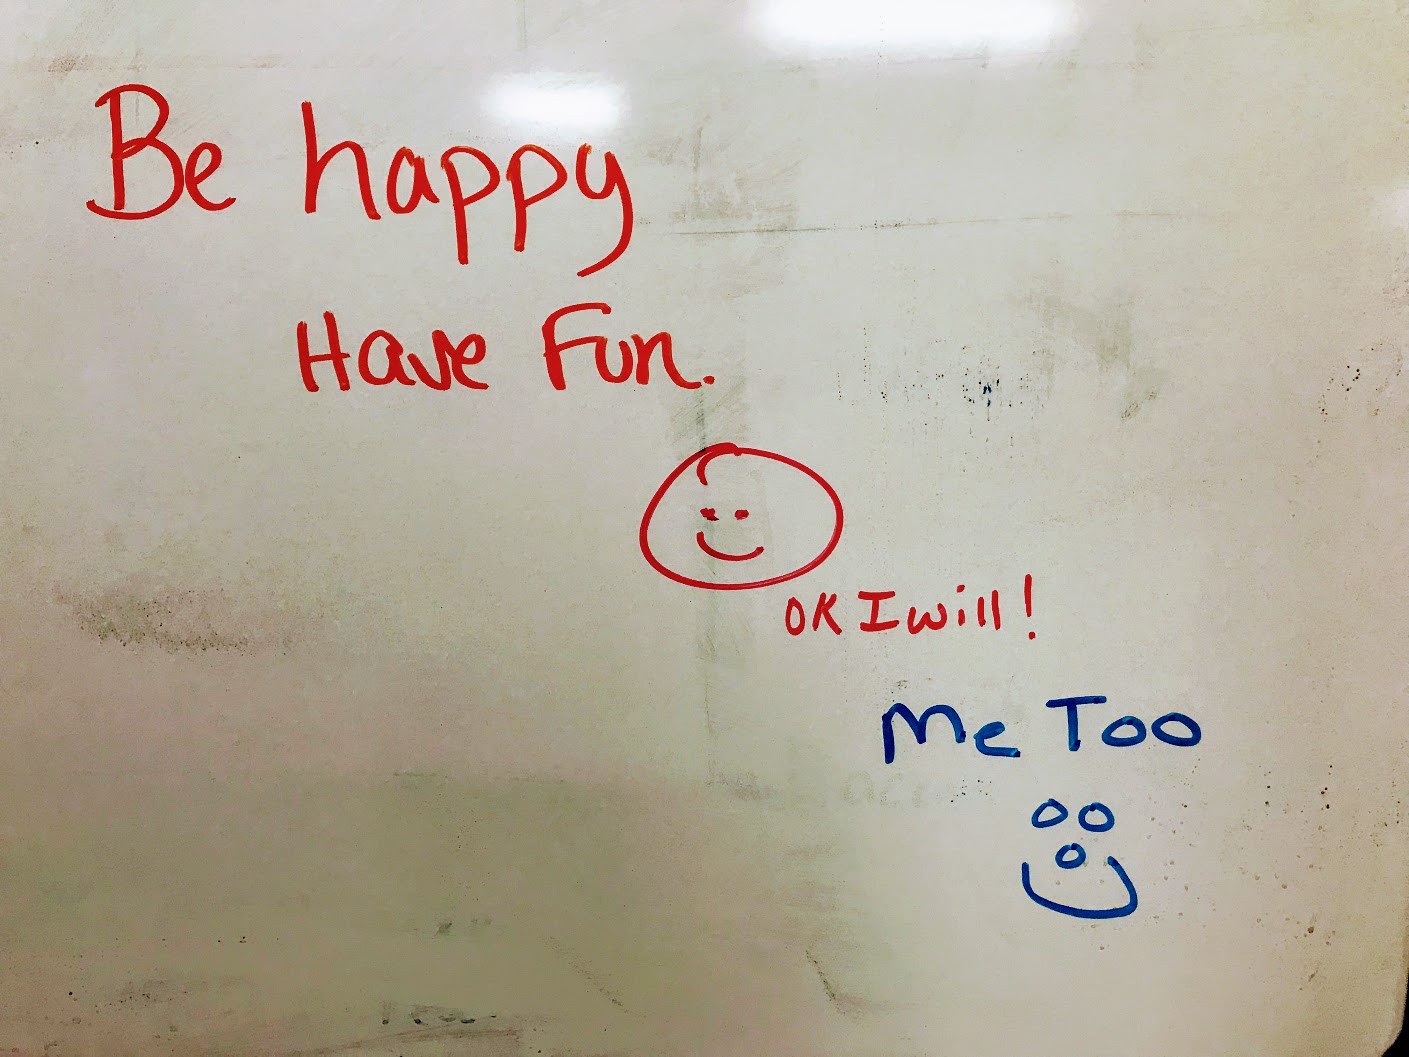 Be happy
Have Fun.
OK I will!
Me Too